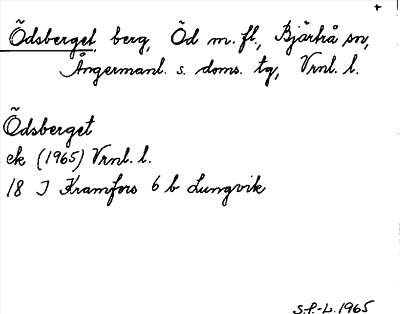 Ödsberget, berg, Öd m. fl., Bjärtrå sn,
Ångermanl. s. doms. tg, Vrnl. l.
Ödsberget
ek (1965) Vrnl. l.
18 I Kramfors 6 b Lungvik
S.P.-L. 1965